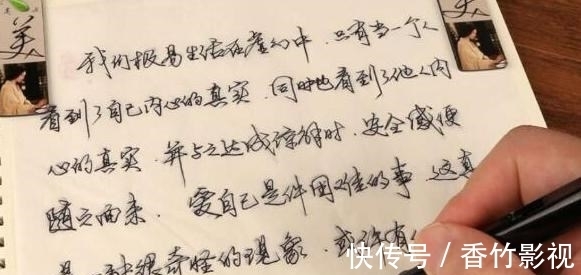 我们极易生活在虚幻中，只有当一个人
看到了自己内心的真实，同时也看到了他人内
心的真实，并与之达成谅解时，安全感便
随之而来，爱自己是件困难的事，这真
是一种很奇怪的现象，或许有
美
快传号／香竹影视